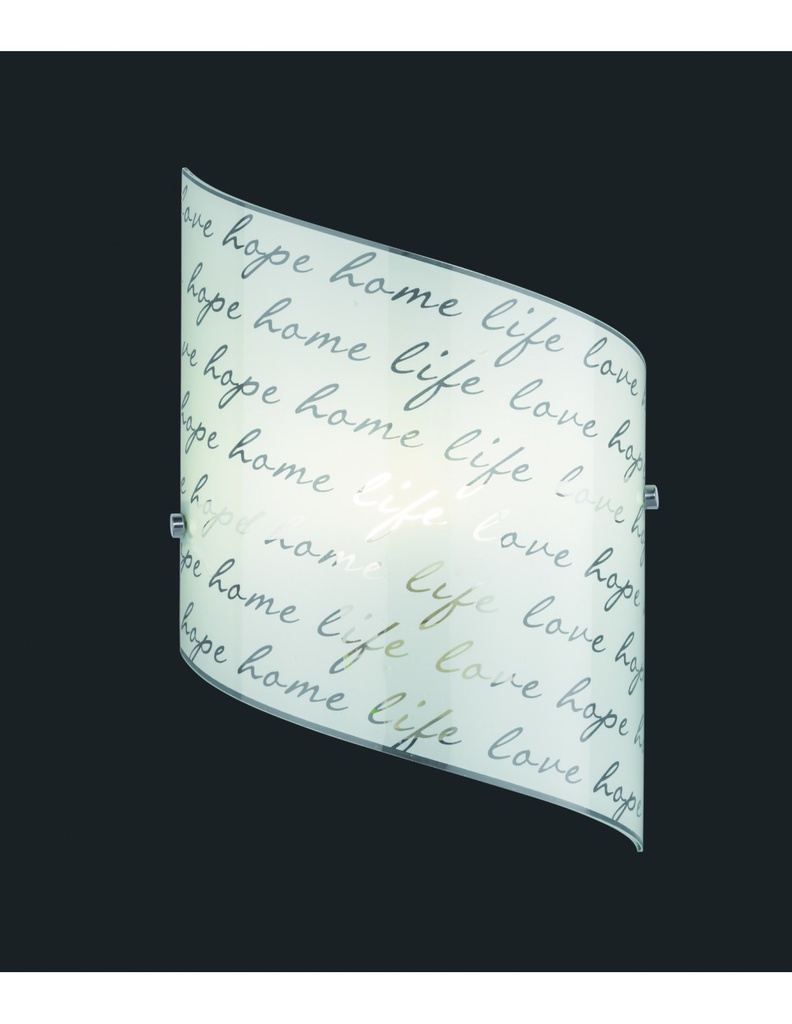 love hope home life love
hope home life love hope
hope home life love
hope home life love hope
hope home life love
home life love hope
hope home life love hope